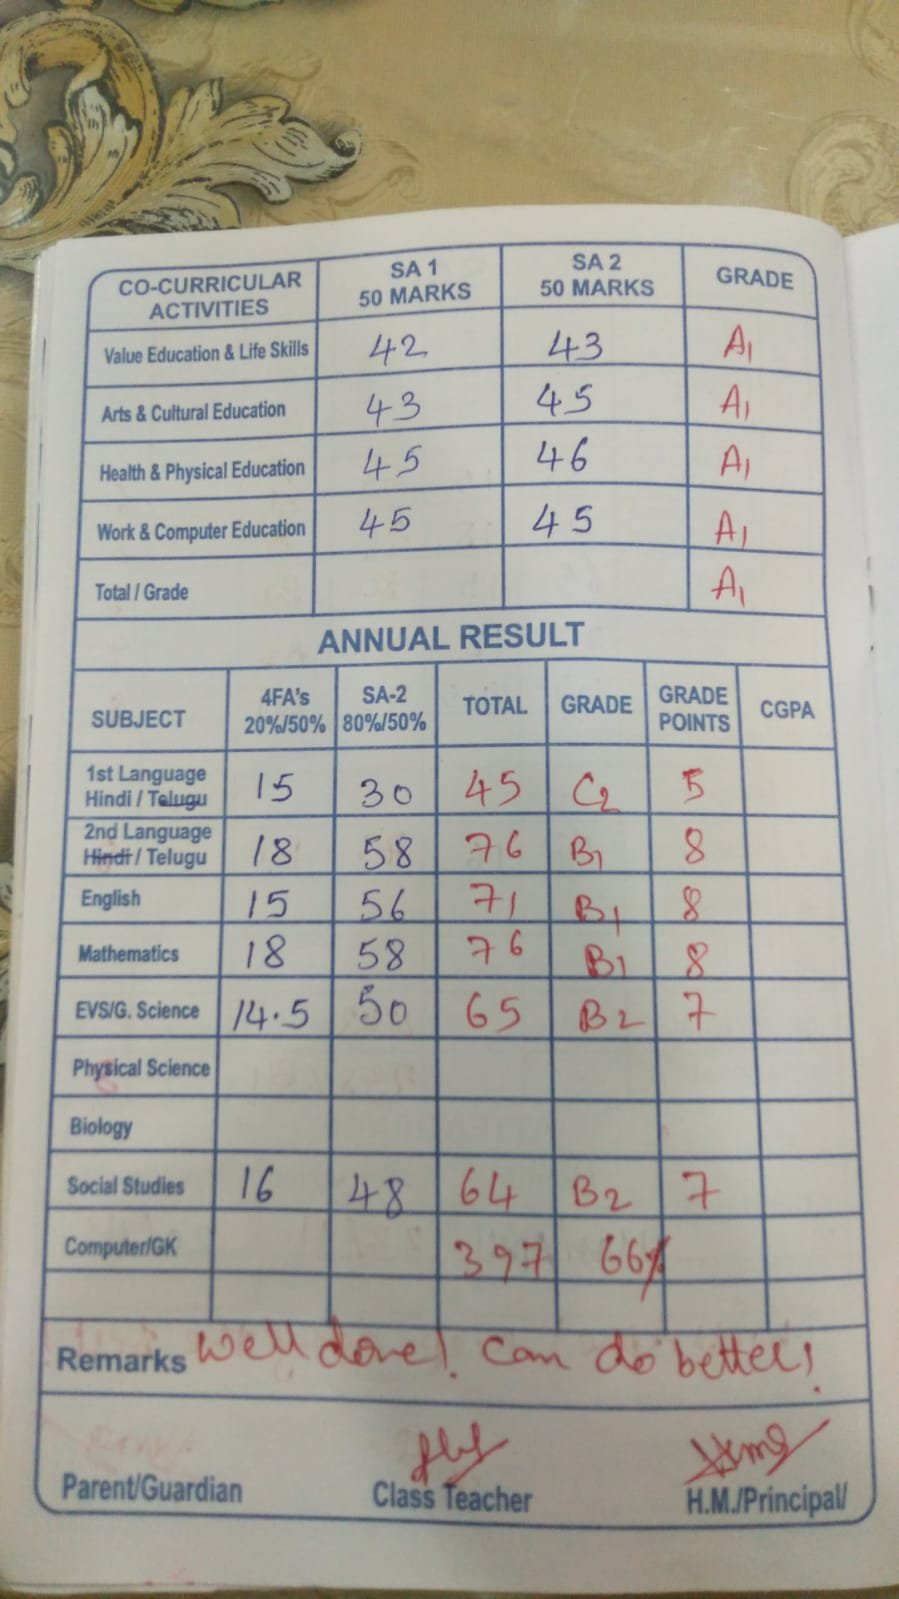 CO-CURRICULAR ACTIVITIES SA 1 50 MARKS SA 2 50 MARKS GRADE
Value Education & Life Skills 42 43 A1
Arts & Cultural Education 43 45 A1
Health & Physical Education 45 46 A1
Work & Computer Education 45 45 A1
Total / Grade A1
ANNUAL RESULT
SUBJECT 4FA's 20%/50% SA-2 80%/50% TOTAL GRADE GRADE POINTS CGPA
1st Language Hindi / Telugu 15 30 45 C2 5
2nd Language Hindi / Telugu 18 58 76 B1 8
English 15 56 71 B1 8
Mathematics 18 58 76 B1 8
EVS/G. Science 14.5 50 65 B2 7
Physical Science
Biology
Social Studies 16 48 64 B2 7
Computer/GK 397 66%
Remarks Well done! Can do better!
Parent/Guardian Class Teacher H.M./Principal/